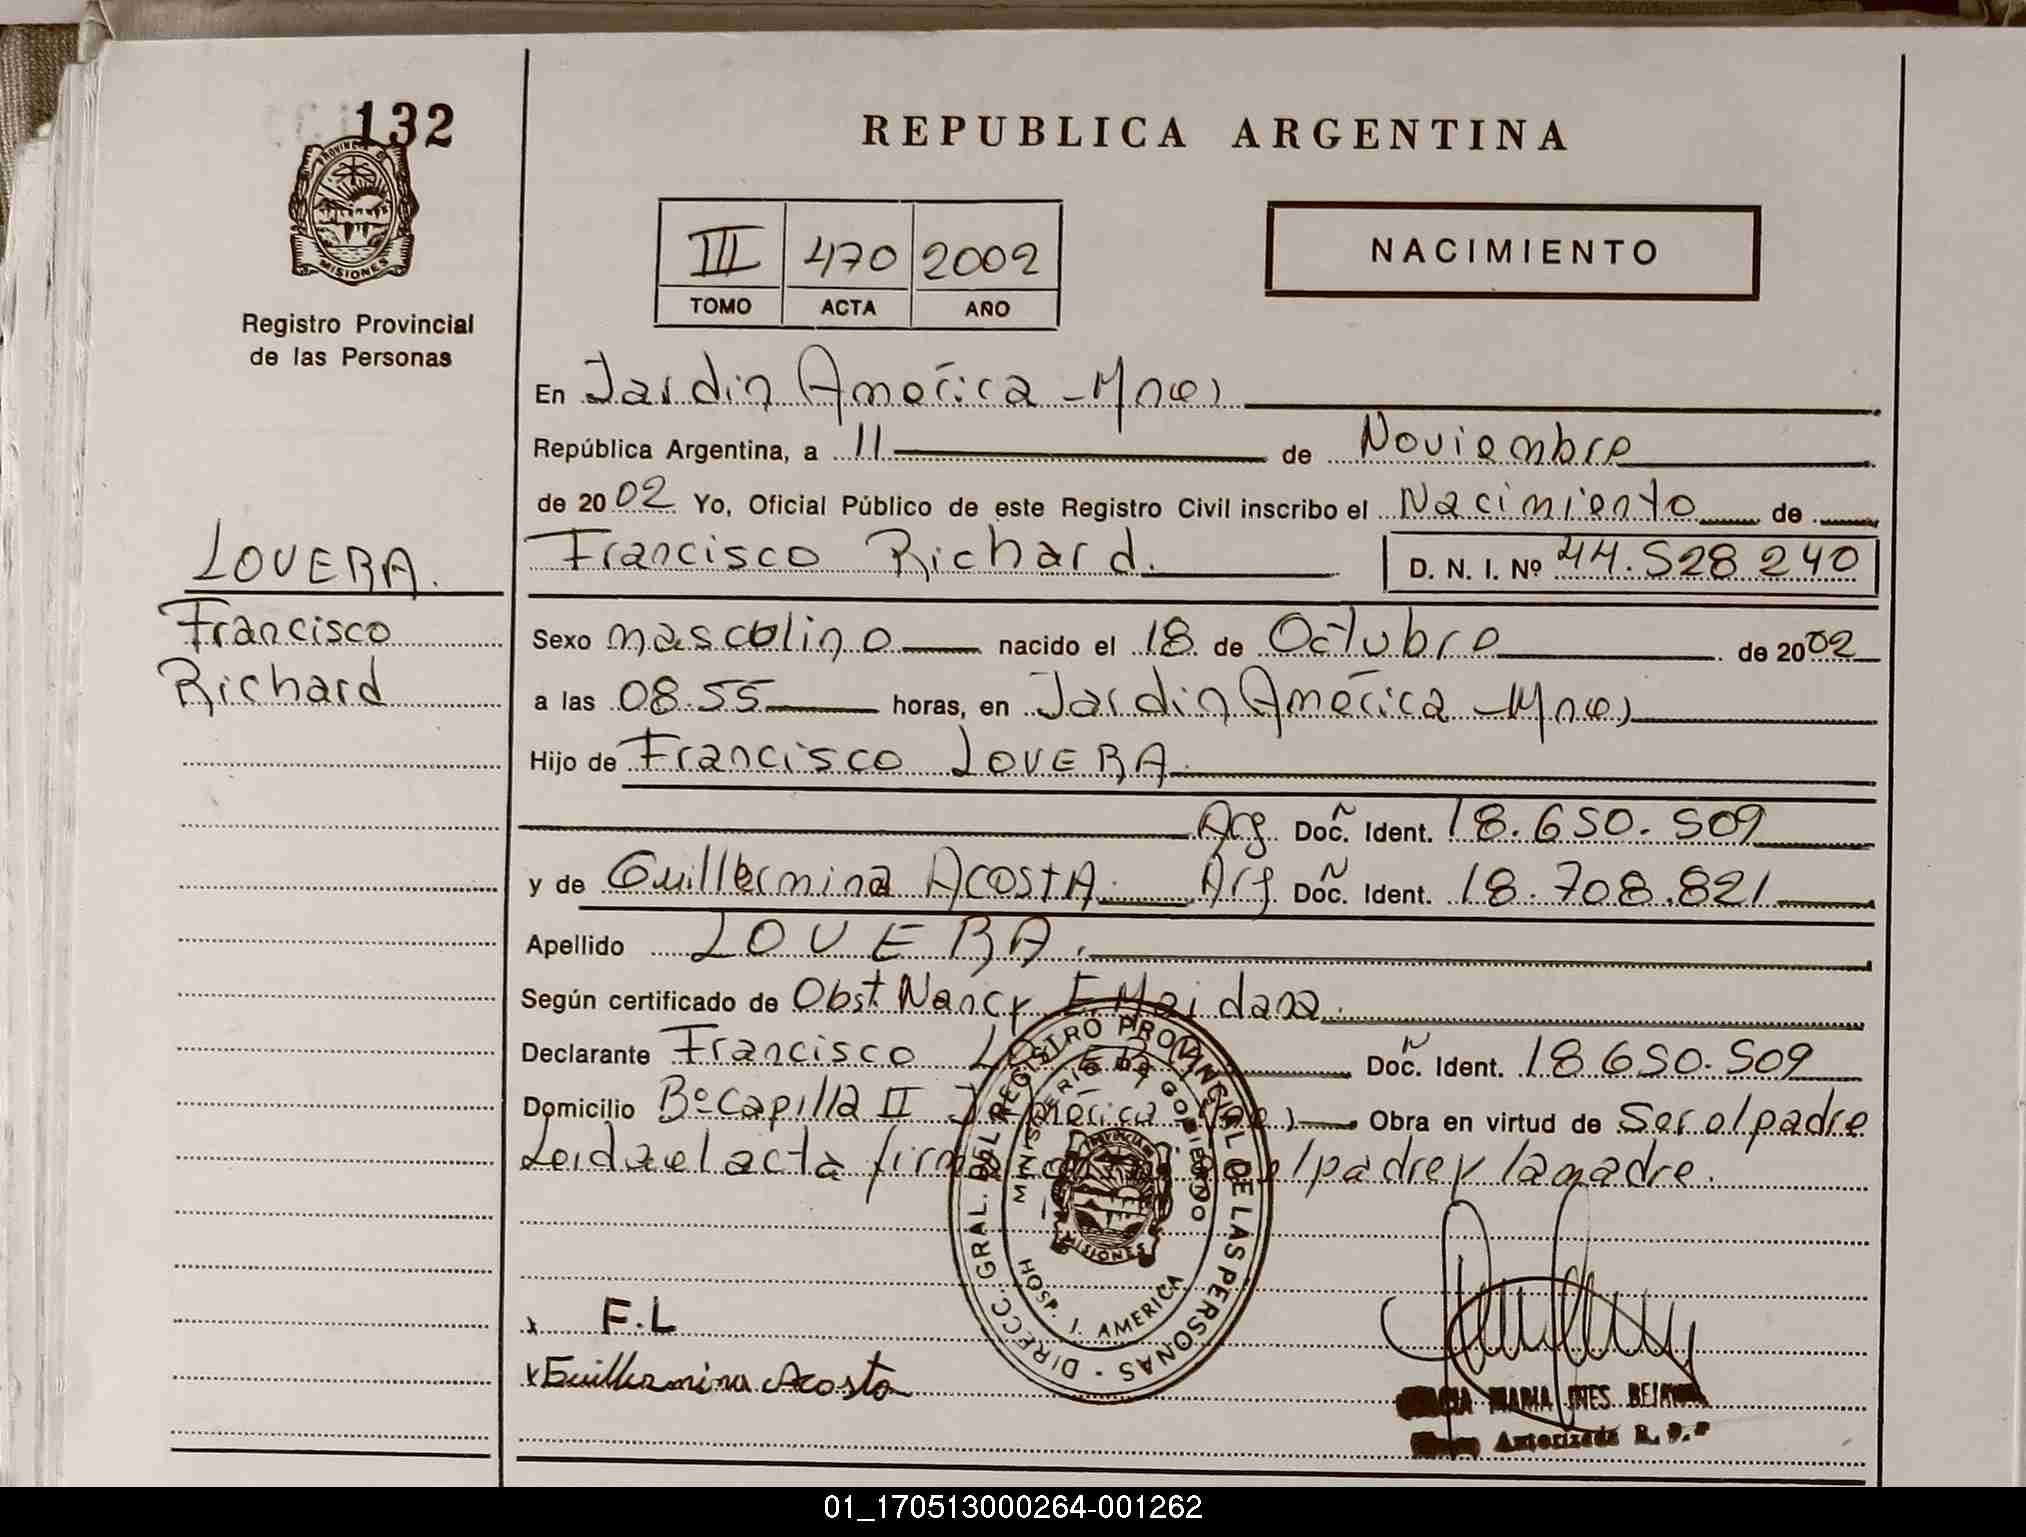 132
PROVINCIA DE
MISIONES
Registro Provincial
de las Personas
LOVERA.
Francisco
Richard
REPUBLICA ARGENTINA
III 470 2002
TOMO ACTA AÑO
NACIMIENTO
En Jardin América - Mnes
República Argentina, a 11 de Noviembre
de 2002 Yo, Oficial Público de este Registro Civil inscribo el Nacimiento de
Francisco Richard. D. N. I. Nº 44.528.240
Sexo masculino nacido el 18 de Octubre de 2002
a las 08.55 horas, en Jardin América - Mnes
Hijo de Francisco LOVERA
Arg. Doc. Ident. 18.650.509
y de Guillermina ACOSTA. Arg Doc. Ident. 18.708.821
Apellido LOVERA.
Según certificado de Obst Nancy E Meidana.
Declarante Francisco Doc. Ident. 18650.509
Domicilio Bº Capilla II J. América Obra en virtud de Ser el padre
Leida el acta el padre y la madre.
DIRECC. GRAL. DEL REGISTRO PROVINCIAL DE LAS PERSONAS -
MINISTERIO DE GOBIERNO
PROVINCIA
MISIONES
HOSP. J. AMERICA
x F.L
x Guillermina Acosta
MARIA INES
Autorizada R. P. P
01_170513000264-001262